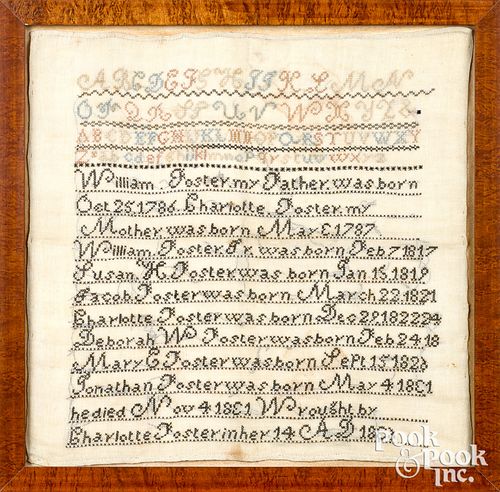 A B C D E F G H I J K L M N
O P Q R S T U V W X Y Z &
A B C D E F G H I J K L M N O P Q R S T U V W X Y
Z a b c d e f g h i j k l m n o p q r s t u v w x y z
William Foster my Father was born
Oct 25 1786 Charlotte Foster my
Mother was born May 8 1787
William Foster Jr was born Feb 7 1817
Susan H Foster was born Jan 15 1819
Jacob Foster was born March 22 1821
Charlotte Foster was born Dec 29 1822
Deborah W Foster was born Feb 24 18
Mary E Foster was born Sept 15 1828
Jonathan Foster was born May 4 1831
he died Nov 4 1831 Wrought by
Charlotte Foster in her 14 A D
Pook
& Pook
Inc.